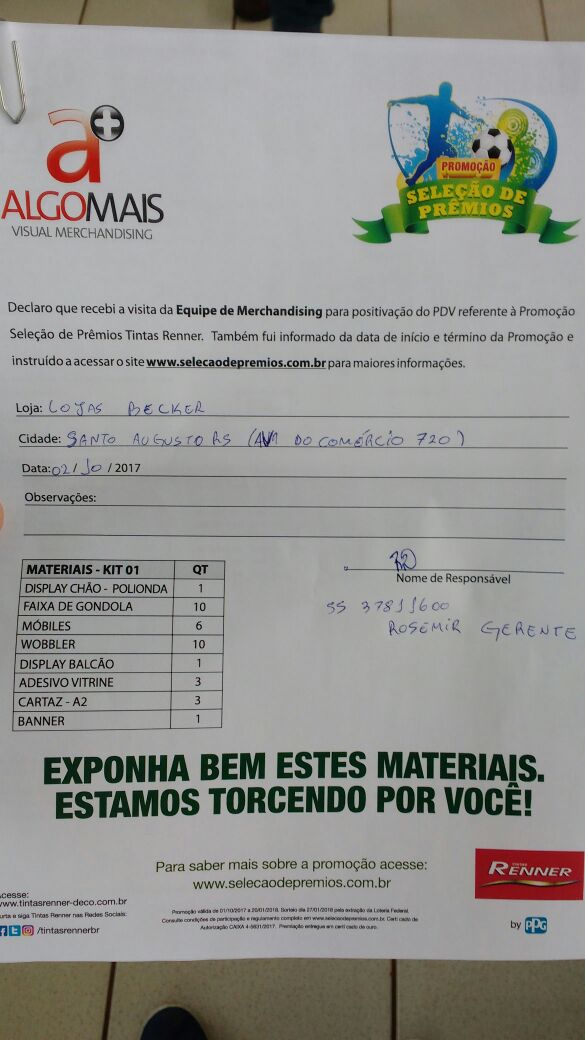 a+
ALGOMAIS
VISUAL MERCHANDISING
PROMOÇÃO
SELEÇÃO DE
PRÊMIOS
Declaro que recebi a visita da Equipe de Merchandising para positivação do PDV referente à Promoção
Seleção de Prêmios Tintas Renner. Também fui informado da data de início e término da Promoção e
instruído a acessar o site www.selecaodepremios.com.br para maiores informações.
Loja: LOJAS BECKER
Cidade: SANTO AUGUSTO RS (AV DO COMÉRCIO 720)
Data: 02/10/2017
Observações:
Nome de Responsável
55 37811600
ROSEMIR GERENTE
MATERIAIS - KIT 01 QT
DISPLAY CHÃO - POLIONDA 1
FAIXA DE GONDOLA 10
MÓBILES 6
WOBBLER 10
DISPLAY BALCÃO 1
ADESIVO VITRINE 3
CARTAZ - A2 3
BANNER 1
EXPONHA BEM ESTES MATERIAIS.
ESTAMOS TORCENDO POR VOCÊ!
Para saber mais sobre a promoção acesse:
www.selecaodepremios.com.br
TINTAS
RENNER
by PPG
Acesse:
www.tintasrenner-deco.com.br
urta e siga Tintas Renner nas Redes Sociais:
/tintasrennerbr
Promoção válida de 01/10/2017 a 20/01/2018. Sorteio dia 27/01/2018 pela extração da Loteria Federal.
Consulte condições de participação e regulamento completo em www.selecaodepremios.com.br. Certi cado de
Autorização CAIXA 4-5631/2017. Premiação entregue em certi cado de ouro.